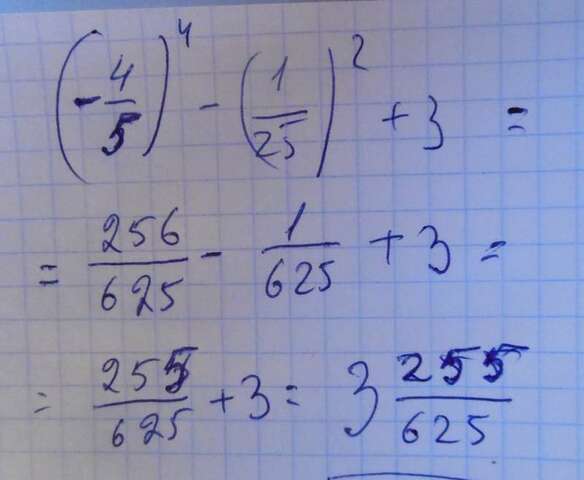 (-4/5)^4 - (1/25)^2 + 3 =
= 256/625 - 1/625 + 3 =
= 255/625 + 3 = 3 255/625